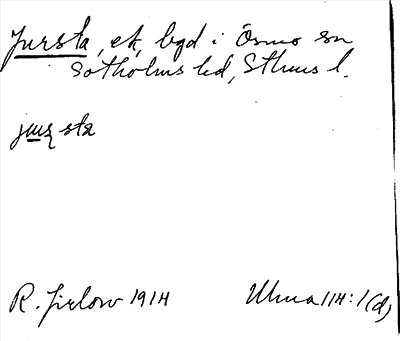 Jursta, ek, bgd i Ösmo sn
Sotholms hd, Sthms l.
juʂsta
R. Jirlow 1914
Ulma 114:1(d)